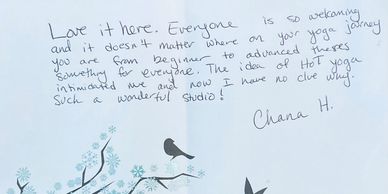 Love it here. Everyone is so welcoming
and it doesn't matter where on your yoga journey
you are from beginner to advanced theres
something for everyone. The idea of HOT yoga
intimidated me and now I have no clue why.
Such a wonderful studio!
Chana H.